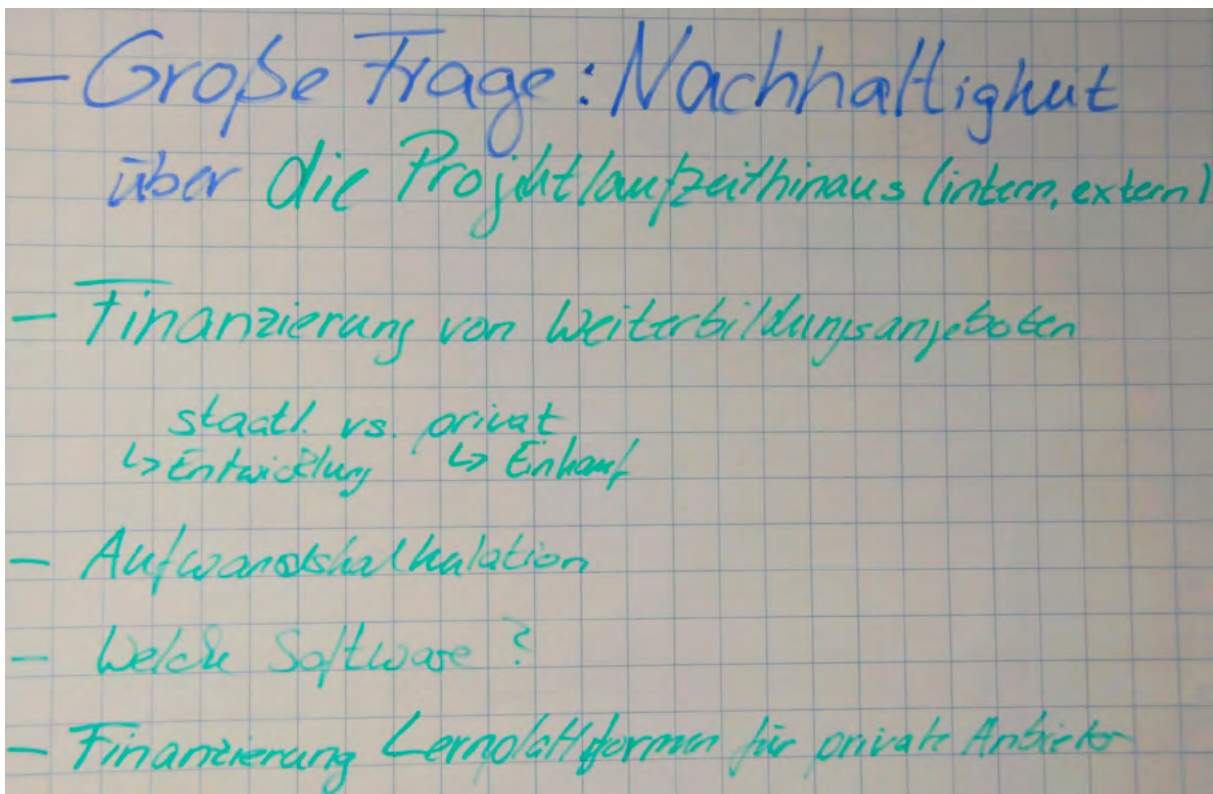 - Große Frage: Nachhaltigkeit
über die Projektlaufzeit hinaus (intern, extern)
- Finanzierung von Weiterbildungsangeboten
staatl. vs. privat
↳ Entwicklung ↳ Einkauf
- Aufwandskalkulation
- Welche Software?
- Finanzierung Lernplattformen für private Anbieter